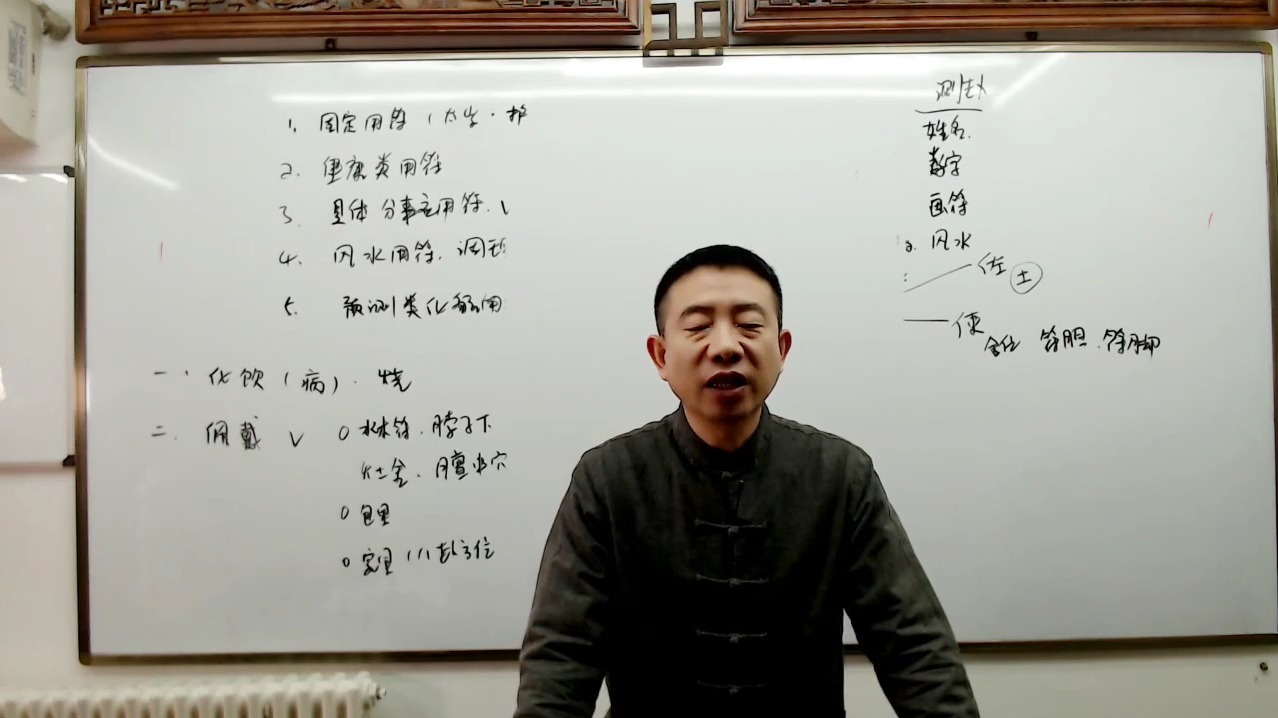 1. 固定用符（太岁·护
2. 健康类用符
3. 具体分事应用符.
4. 风水用符.调
5. 预测类化解用
一、化饮（病）. 烧
二. 佩戴 √ 0 水木符.脖子下
火土金.膻中穴
0 包里
0 家里（八卦方位
测
姓名.
数字
画符
2. 风水
佐 土
使
符胆.符脚